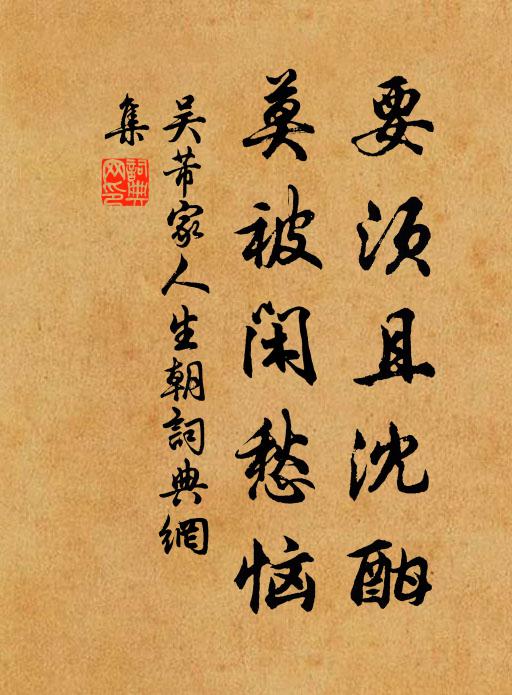 要须且沈酣
莫被闲愁恼
吴芾家人生朝詞典網
集
詞典网印